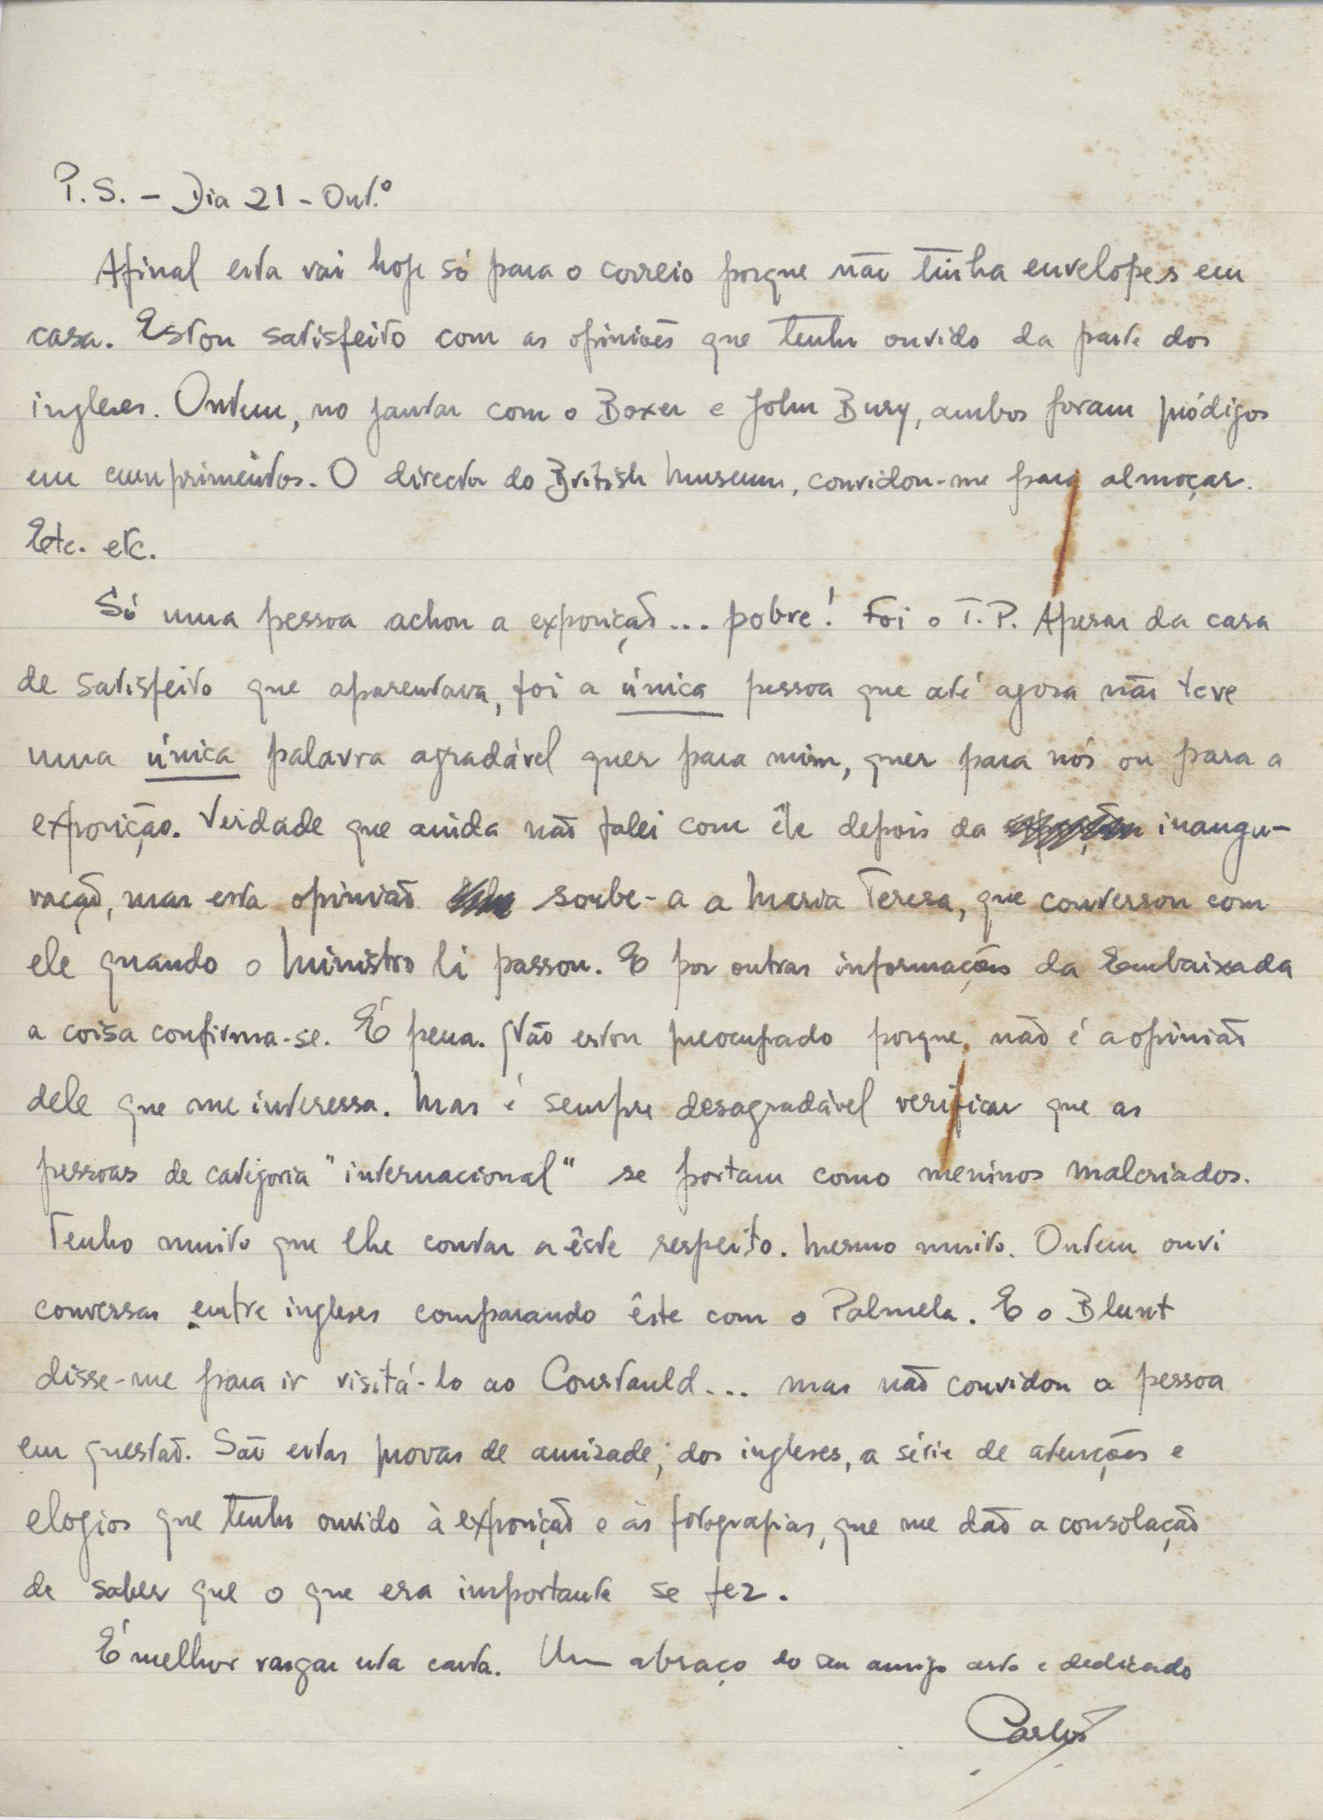 P.S. - Dia 21 - Out.º
Afinal esta vai hoje só para o correio porque não tinha envelopes em
casa. Estou satisfeito com as opiniões que tenho ouvido da parte dos
ingleses. Ontem, no jantar com o Boxer e John Bury, ambos foram pródigos
em cumprimentos. O director do British Museum, convidou-me para almoçar.
Etc. etc.
Só uma pessoa achou a exposição... pobre! Foi o T.P. Apesar da cara
de satisfeito que aparentava, foi a única pessoa que até agora não teve
uma única palavra agradável quer para mim, quer para nós ou para a
exposição. Verdade que ainda não falei com êle depois da inaugu-
ração, mas esta opinião soube-a a Maria Teresa, que conversou com
ele quando o Ministro li passou. E por outras informações da Embaixada
a coisa confirma-se. É pena. Não estou preocupado porque, não é a opinião
dele que me interessa. Mas é sempre desagradável verificar que as
pessoas de categoria "internacional" se portam como meninos malcriados.
Tenho muito que lhe contar a êste respeito. Mesmo muito. Ontem ouvi
conversas entre ingleses comparando êste com o Palmela. E o Blunt
disse-me para ir visitá-lo ao Courtauld... mas não convidou a pessoa
em questão. São estas provas de amizade, dos ingleses, a série de atenções e
elogios que tenho ouvido à exposição e às fotografias, que me dão a consolação
de saber que o que era importante se fez.
É melhor rasgar esta carta. Um abraço do seu amigo certo e dedicado
Carlos